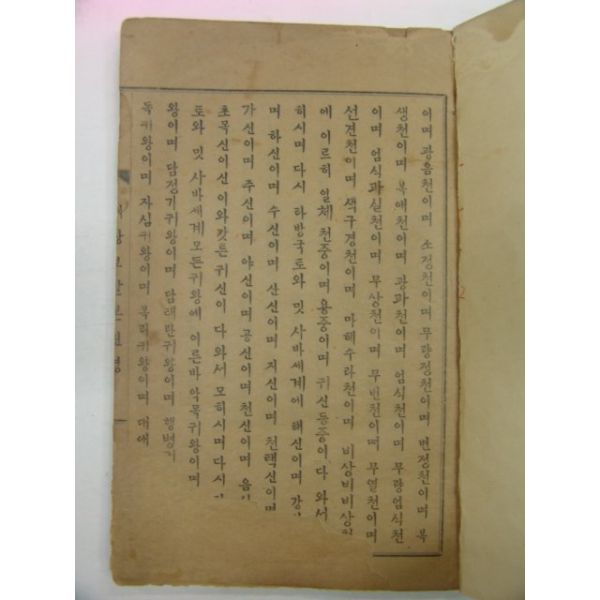 이며 광음천이며 소정천이며 무량정천이며 변정천이며 복
생천이며 복애천이며 광과천이며 엄식천이며 무량엄식천
이며 엄식과실천이며 무상천이며 무번천이며 무열천이며
선견천이며 색구경천이며 마혜수라천이며 비상비비상
에 이르히 일체 천중이며 용중이며 귀신등중이 다 와서
히시며 다시 타방국토와 밋 사바세계에 해신이며 강
며 하신이며 수신이며 산신이며 지신이며 천택신이며
가신이며 주신이며 야신이며 공신이며 천신이며 음
초목신이신이와 캇튼 귀신이 다 와서 모히시며 다시
토와 밋 사바세계 모든귀왕에 이른바 악목귀왕이며
왕이며 담정기귀왕이며 담태란귀왕이며 행병
독귀왕이며 자심귀왕이며 복리귀왕이며 대애